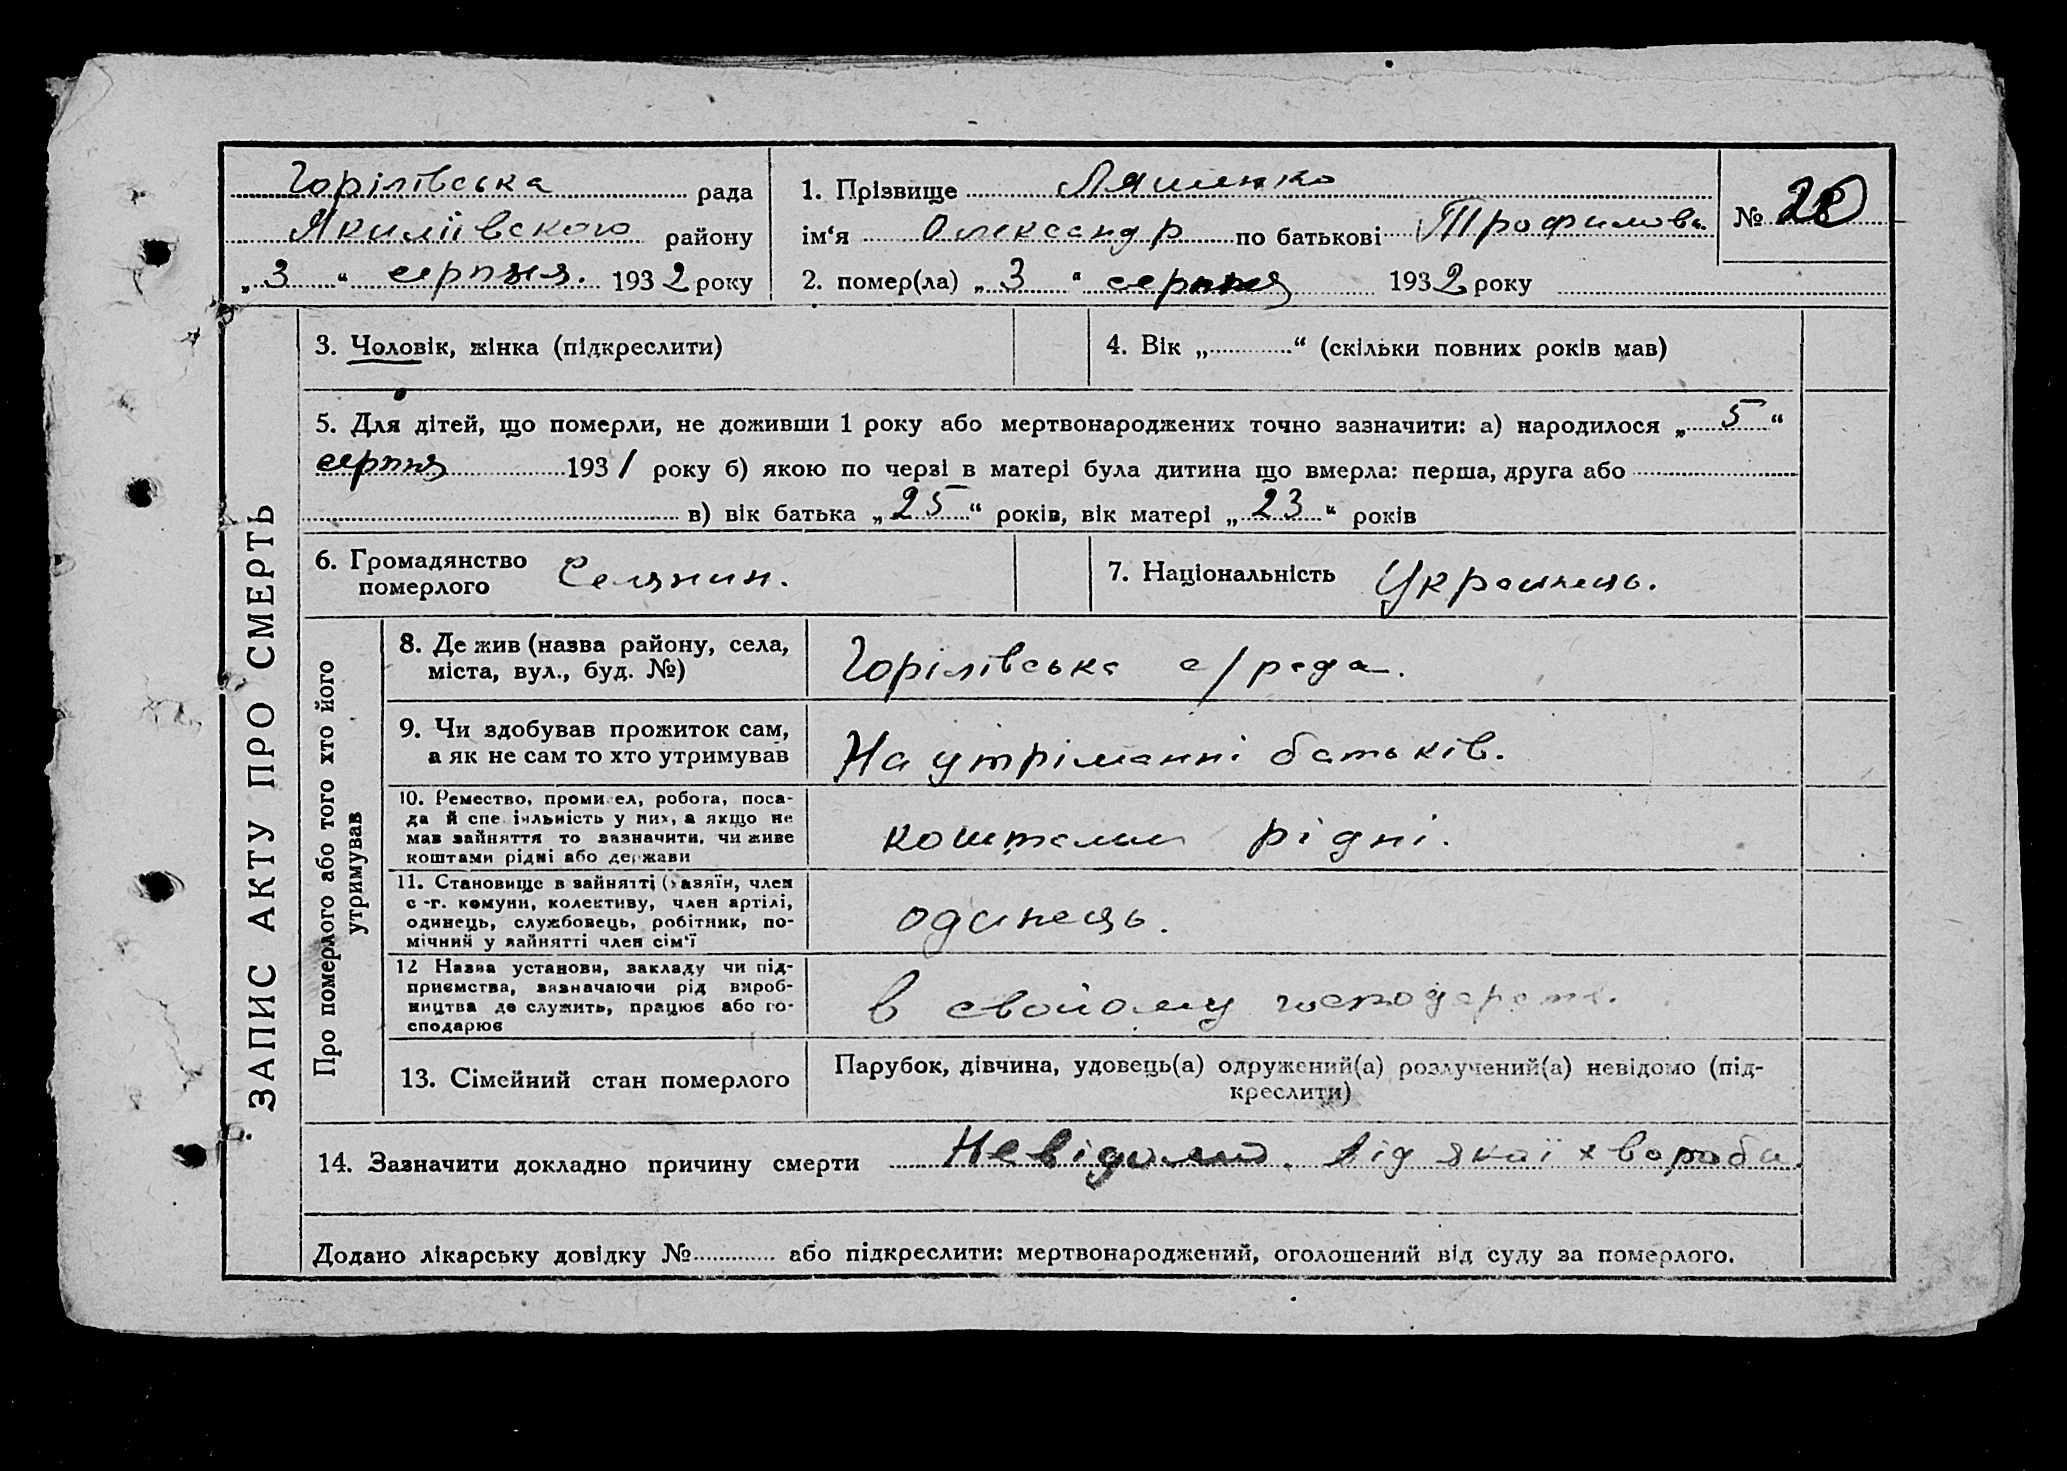 Горілівська рада
Якимівского району
„3“ серпня. 1932 року
1. Прізвище Ляшенко
ім‘я Олександр по батькові Трофимов.
2. помер(ла) „3“ серпня 1932 року
№ 28
ЗАПИС АКТУ ПРО СМЕРТЬ
3. Чоловік, жінка (підкреслити)
4. Вік „ “ (скільки повних років мав)
5. Для дітей, що померли, не доживши 1 року або мертвонароджених точно зазначити: а) народилося „5“
серпня 1931 року б) якою по черзі в матері була дитина що вмерла: перша, друга або
в) вік батька „25“ років, вік матері „23“ років
6. Громадянство
померлого Селянин.
7. Національність Украинець.
Про померлого або того хто його
утримував
8. Де жив (назва району, села,
міста, вул., буд. №)
Горілівська с/рада.
9. Чи здобував прожиток сам,
а як не сам то хто утримував
На утріманні батьків.
10. Ремество, промисел, робота, поса-
да й спеціяльність у них, а якщо не
мав зайняття то зазначити, чи живе
коштами рідні або держави
коштами рідні.
11. Становище в зайнятті (хазяїн, член
с-г. комуни, колективу, член артілі,
одинець, службовець, робітник, по-
мічний у зайнятті член сім‘ї
одинець.
12 Назва установи, закладу чи під-
приємства, зазначаючи рід вироб-
ництва де служить, працює або го-
сподарює
в свойому господарстві.
13. Сімейний стан померлого
Парубок, дівчина, удовець(а) одружений(а) розлучений(а) невідомо (під-
креслити)
14. Зазначити докладно причину смерти Невідомо. від якої хвороби.
Додано лікарську довідку № або підкреслити: мертвонароджений, оголошений від суду за померлого.